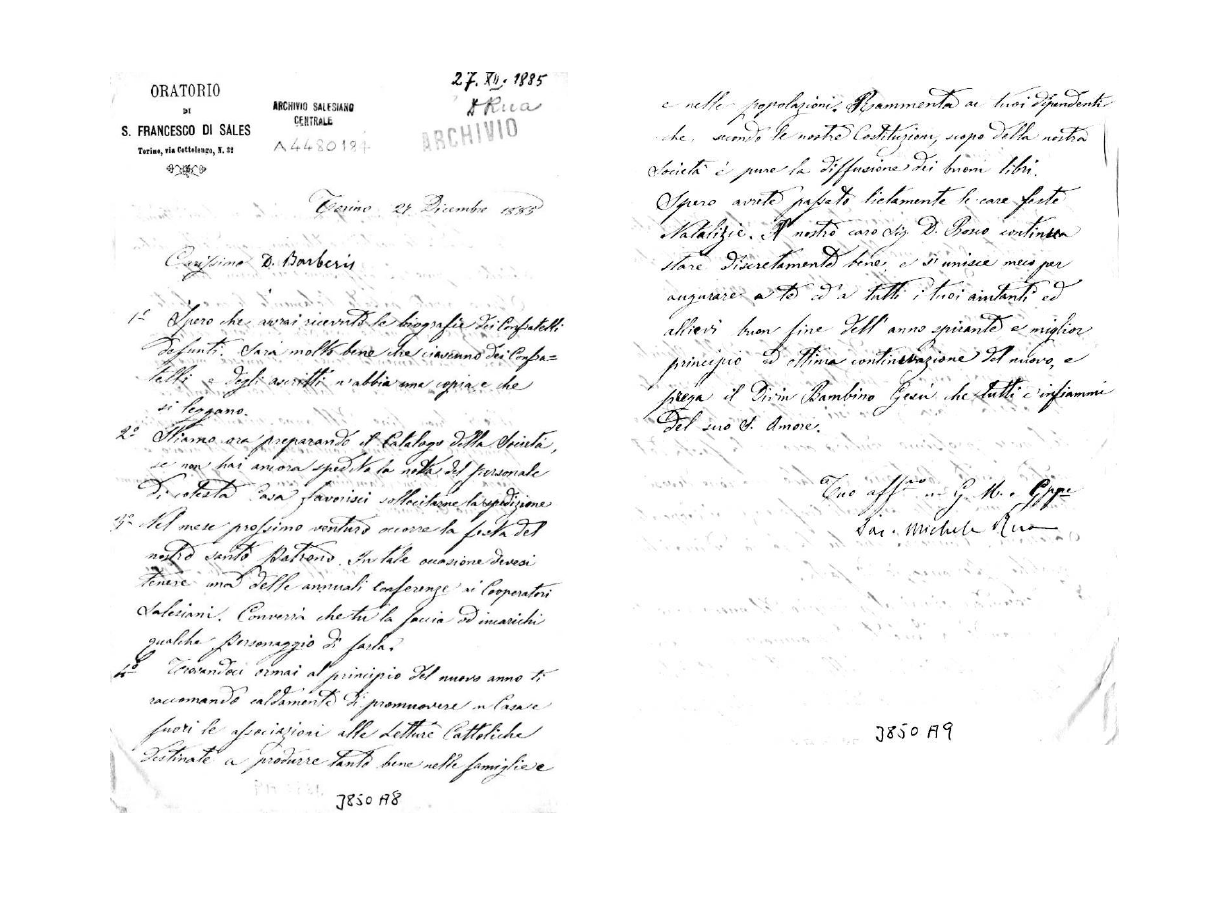 ORATORIO
DI
S. FRANCESCO DI SALES
Torino, via Cottolengo, N. 32
ARCHIVIO SALESIANO
CENTRALE
A4480187
27. XII. 1885
D Rua
ARCHIVIO
Torino 27 Dicembre 1885
Carissimo D. Barberis
1º Spero che avrai ricevuto le biografie dei Confratelli
defunti. Sarà molto bene che ciascuno dei Confra=
telli e degli ascritti n'abbia una copia e che
si leggano.
2º Stiamo ora preparando il Catalogo della Società,
se non hai ancora spedito la nota del personale
di cotesta Casa favorisci sollecitarne la spedizione
3º Nel mese prossimo venturo occorre la festa del
nostro santo Patrono. In tale occasione devesi
tenere una delle annuali conferenze ai Cooperatori
Salesiani. Converrà che tu la faccia od incarichi
qualche personaggio di farla.
4º Trovandoci ormai al principio del nuovo anno ti
raccomando caldamente di promuovere in Casa e
fuori le associazioni alle Letture Cattoliche
destinate a produrre tanto bene nelle famiglie e
3850 A8
e nelle popolazioni. Rammenta ai tuoi dipendenti
che, secondo le nostre Costituzioni, scopo della nostra
Società è pure la diffusione dei buoni libri.
Spero avrete passato lietamente le care feste
Natalizie. Il nostro caro Sig. D. Bosco continua
stare discretamente bene, e si unisce meco per
augurare a te ed a tutti i tuoi aiutanti ed
allievi buon fine dell'anno spirante e miglior
principio ed ottima continuazione del nuovo, e
prega il Divin Bambino Gesù che tutti c'infiammi
del suo S. Amore.
Tuo aff.mo in G. M. e Gppe
Sac. Michele Rua
3850 A9